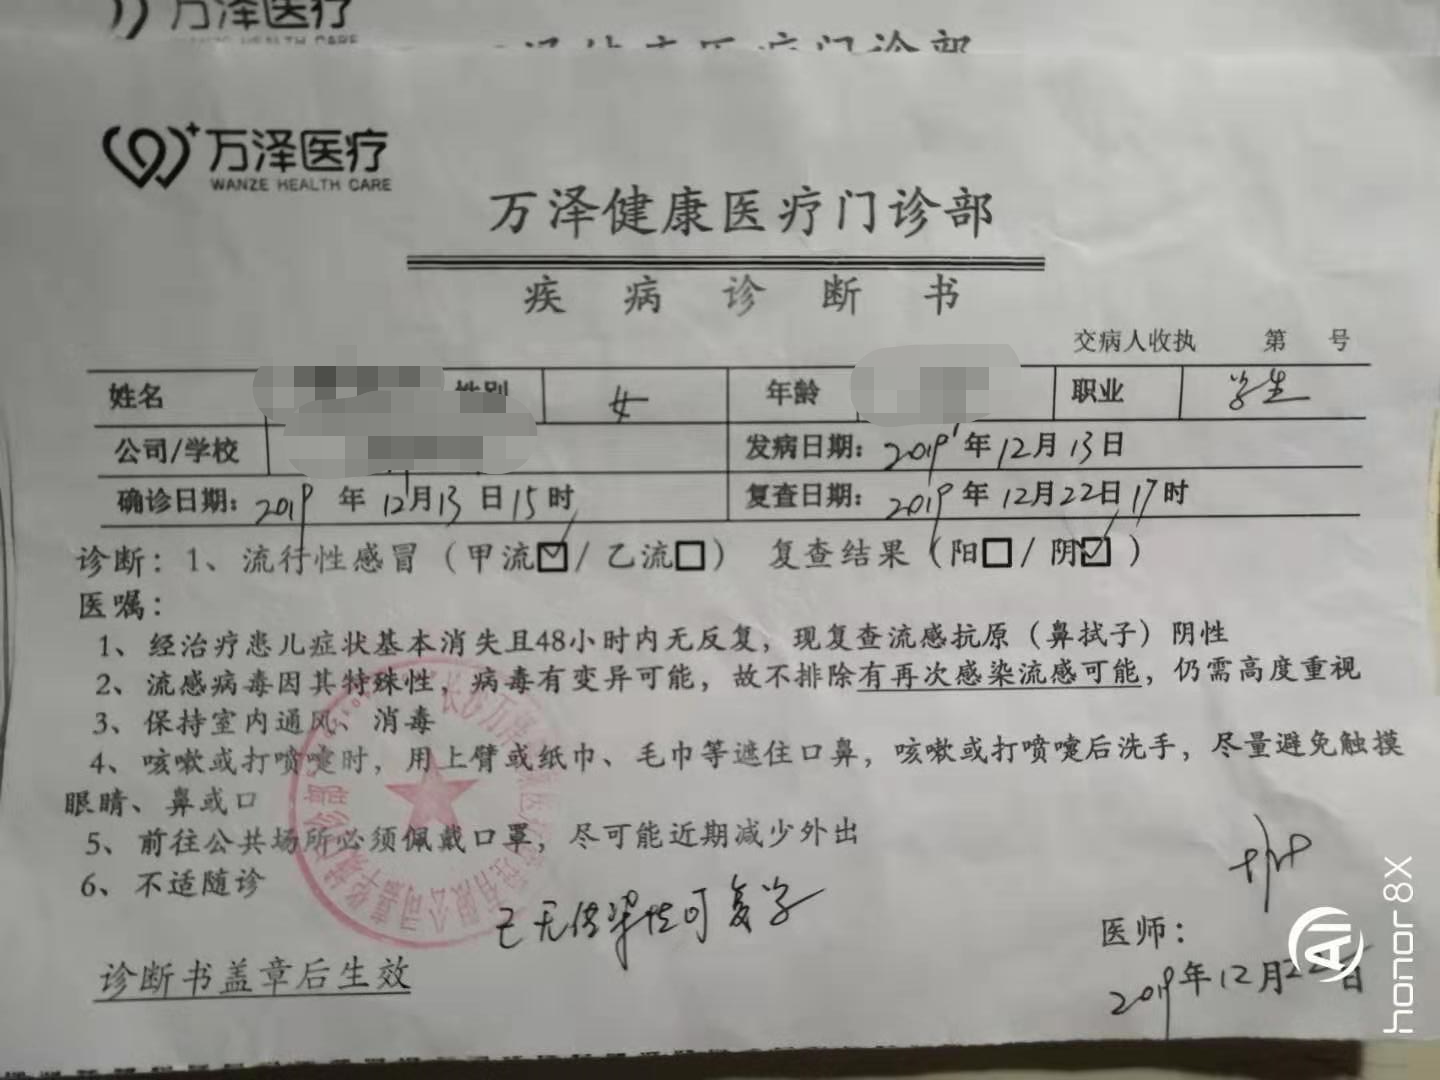 万泽医疗
WANZE HEALTH CARE
万泽医疗
WANZE HEALTH CARE
万泽健康医疗门诊部
疾病诊断书
交病人收执 第 号
姓名 性别 女 年龄 职业 学生
公司/学校 发病日期：2019年12月13日
确诊日期：2019年12月13日15时 复查日期：2019年12月22日17时
诊断：1、流行性感冒（甲流☑/乙流□） 复查结果（阳□/阴☑）
医嘱：
1、经治疗患儿症状基本消失且48小时内无反复，现复查流感抗原（鼻拭子）阴性
2、流感病毒因其特殊性，病毒有变异可能，故不排除有再次感染流感可能，仍需高度重视
3、保持室内通风、消毒
4、咳嗽或打喷嚏时，用上臂或纸巾、毛巾等遮住口鼻，咳嗽或打喷嚏后洗手，尽量避免触摸
眼睛、鼻或口
5、前往公共场所必须佩戴口罩，尽可能近期减少外出
6、不适随诊
已无传染性可复学
医师：
诊断书盖章后生效
2019年12月22日
AI
honor 8X